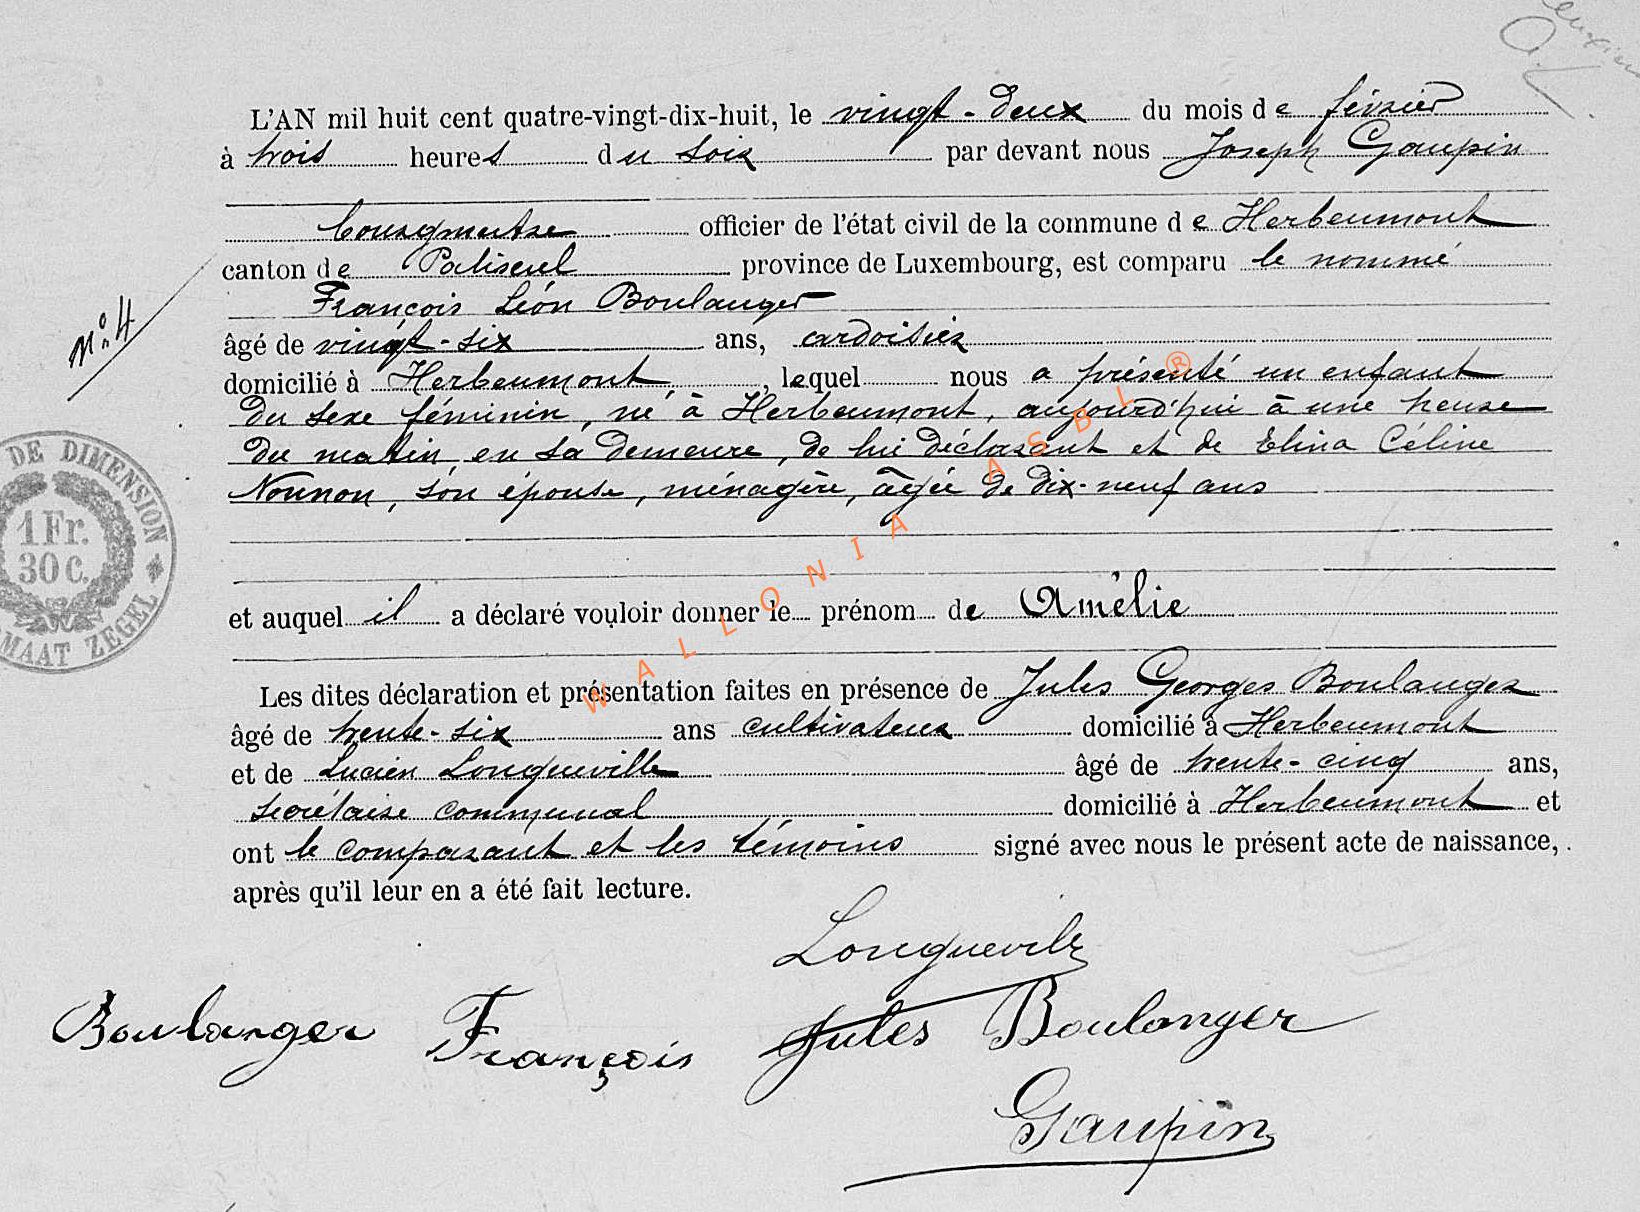 L'AN mil huit cent quatre-vingt-dix-huit, le vingt-deux du mois de février
à trois heures du soir par devant nous Joseph Gaupin
Bourgmestre officier de l'état civil de la commune de Herbeumont
canton de Paliseul province de Luxembourg, est comparu le nommé
François Léon Boulanger
N° 4
âgé de vingt-six ans, ardoisier
domicilié à Herbeumont, lequel nous a présenté un enfant
du sexe féminin, né à Herbeumont, aujourd'hui à une heure
du matin en sa demeure, de lui déclarant et de Elina Céline
Nounon, son épouse, ménagère, âgée de dix-neuf ans
DE DIMENSION
1 Fr.
30 C.
MAAT ZEGEL
et auquel il a déclaré vouloir donner le prénom de Amélie
WALLONIA ASBL ®
Les dites déclaration et présentation faites en présence de Jules Georges Boulanger
âgé de trente-six ans cultivateur domicilié à Herbeumont
et de Lucien Longueville âgé de trente-cinq ans,
secrétaire communal domicilié à Herbeumont et
ont le comparant et les témoins signé avec nous le présent acte de naissance,
après qu'il leur en a été fait lecture.
Longueville
Boulanger François Jules Boulanger
Gaupin